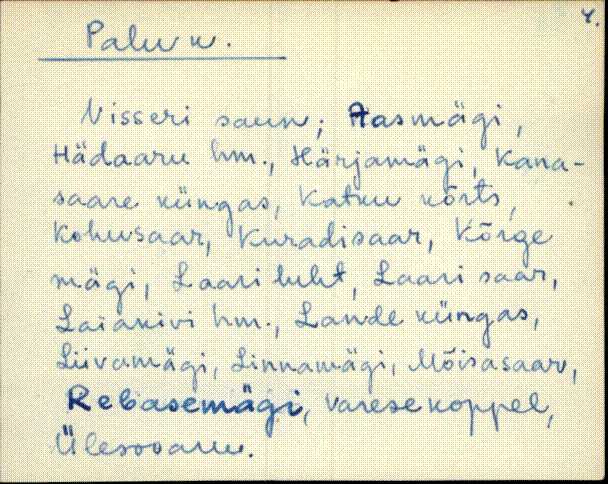 4.
Palu k.
Visseri saun; Aasmägi,
Hädaaru hm., Härjamägi, Kana-
saare küngas, Katku kõrts,
Kohusaar, Kuradisaar, Kõrge
mägi, Laari luht, Laari saar,
Laiakivi hm., Lande küngas,
Liivamägi, Linnamägi, Mõisasaar,
Rebasemägi, Varesekoppel,
Ülesooaru.